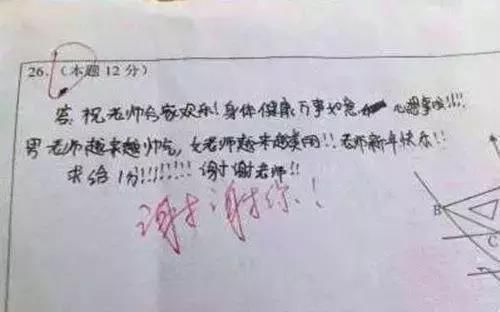 26.(本题12分)
答:祝老师合家欢乐!身体健康 万事如意 心想事成!!!!
男老师越来越帅气,女老师越来越美丽!!老师新年快乐!!
求给1分!!!!!!!!谢谢老师!!
谢谢你!
B
C